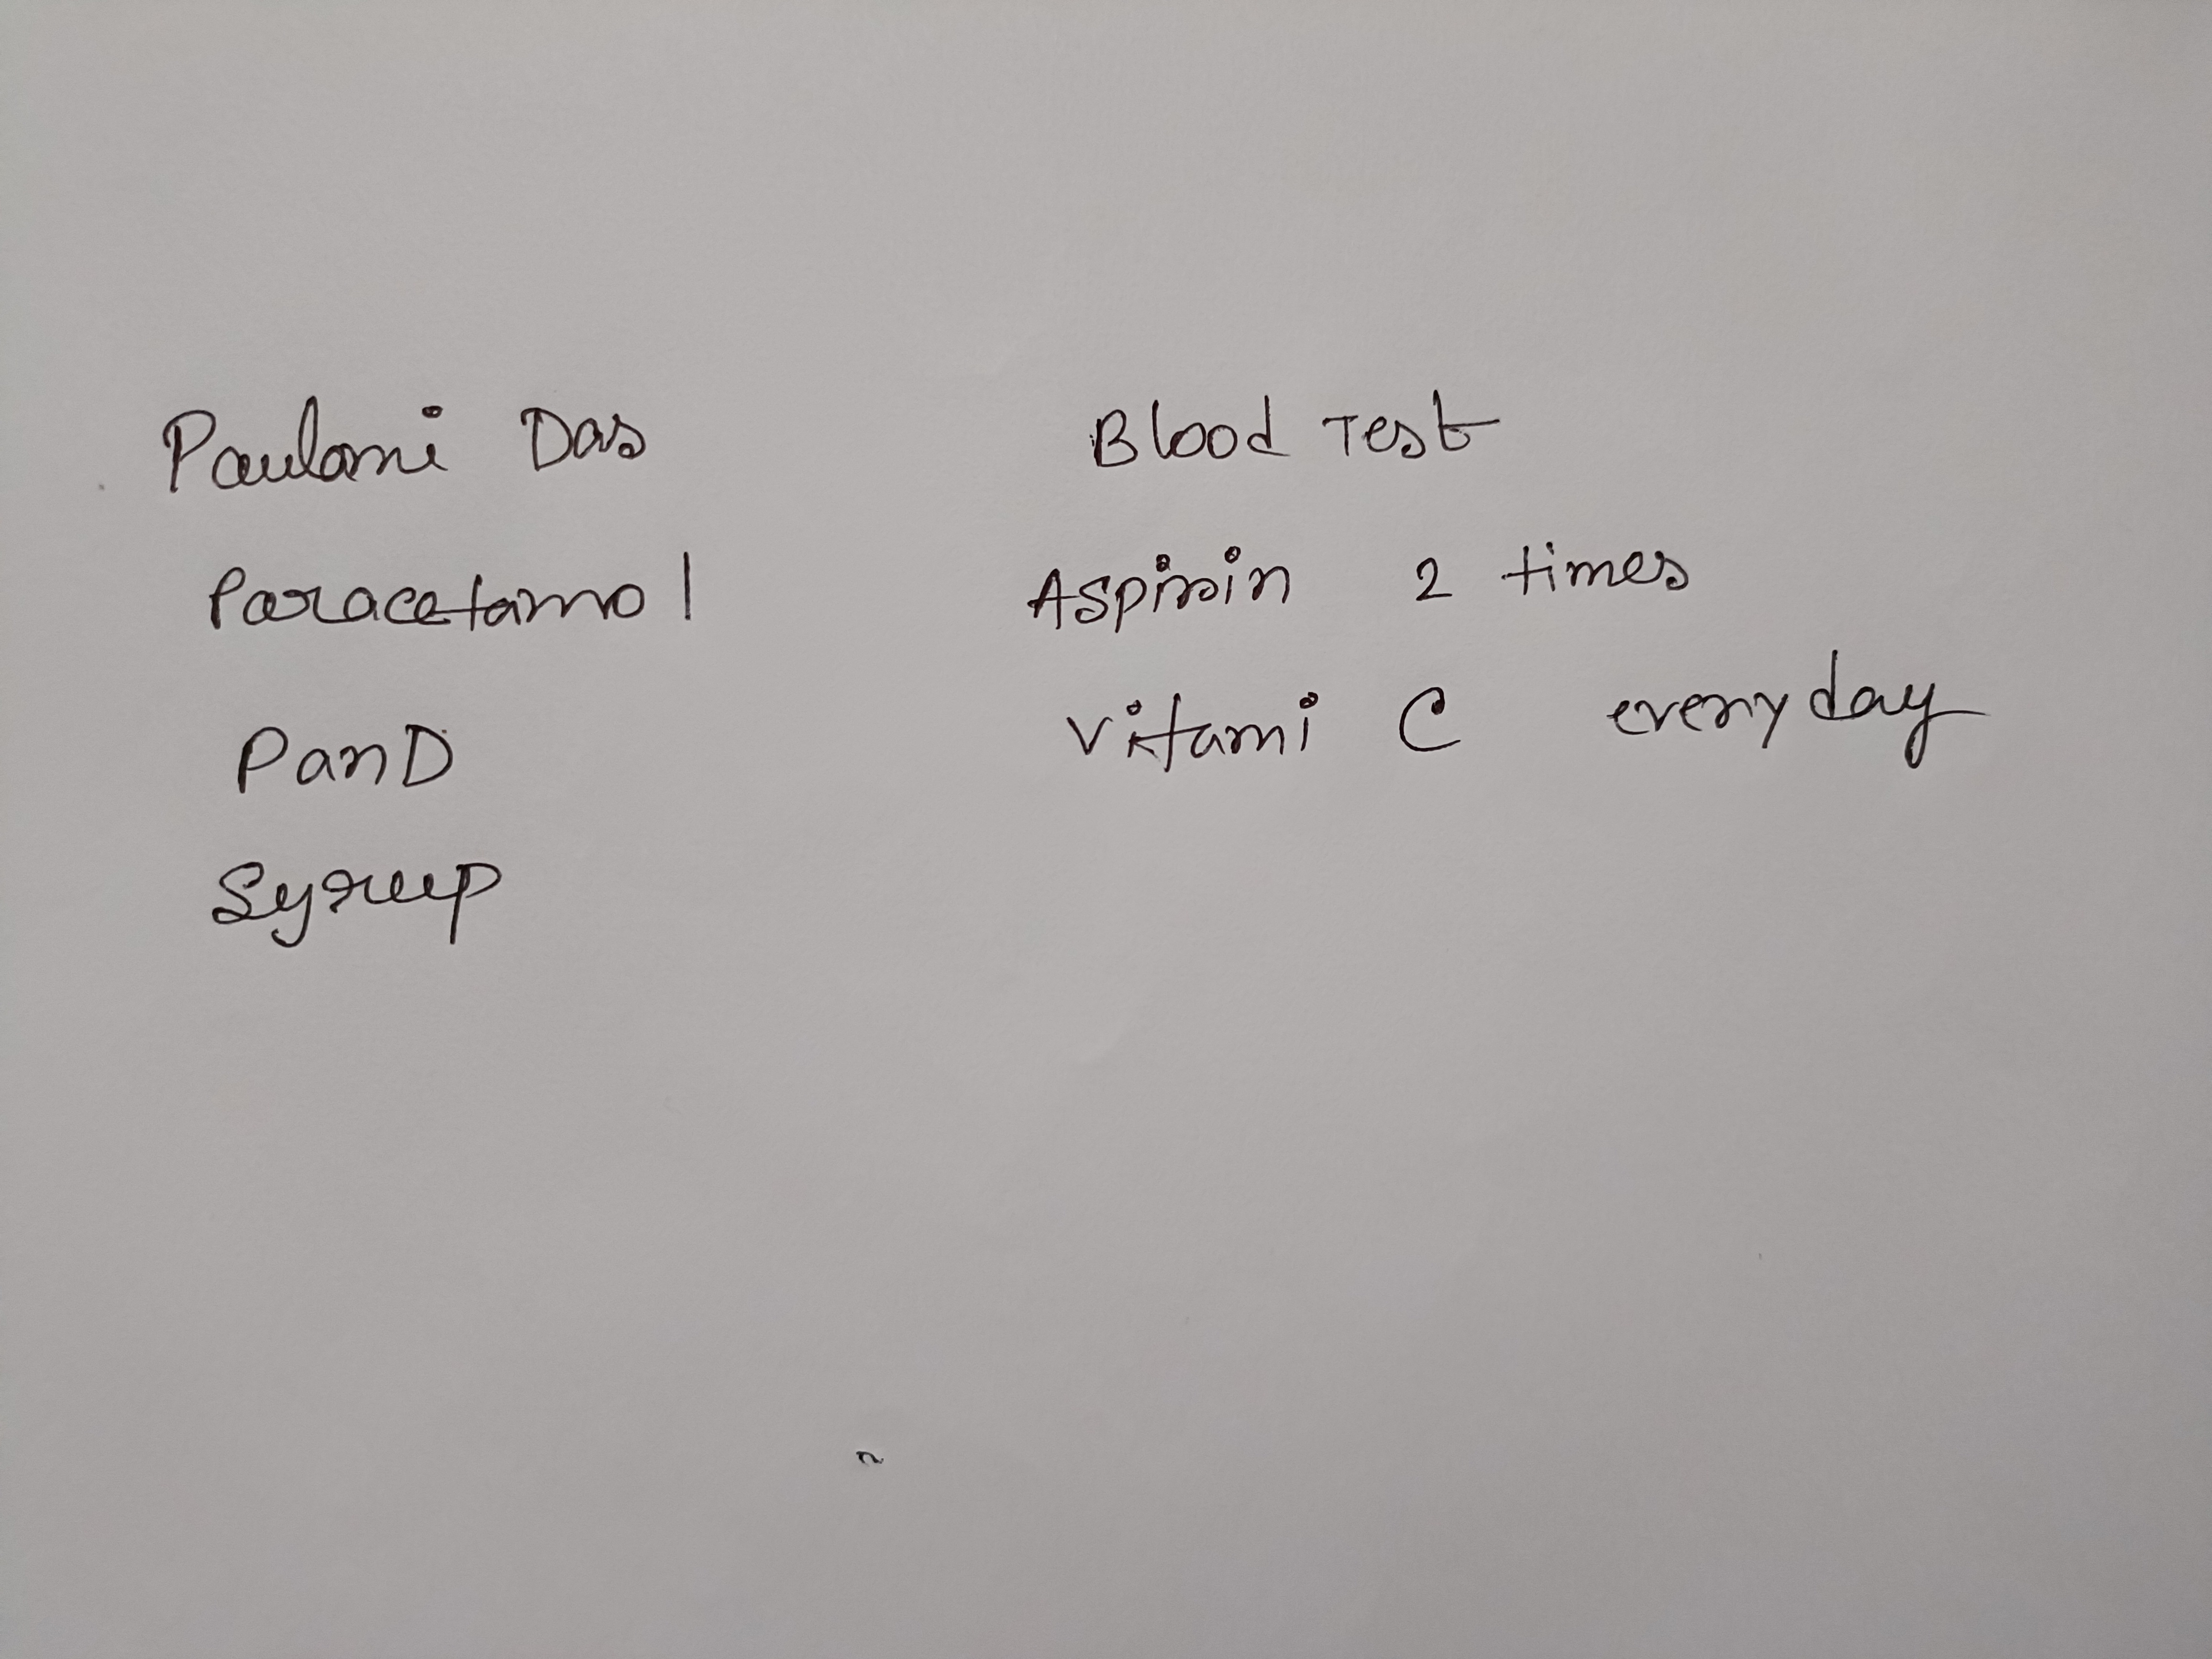 Paulami Das
Paracetamol
PanD
Syrup
Blood Test
Aspirin 2 times
Vitami C everyday